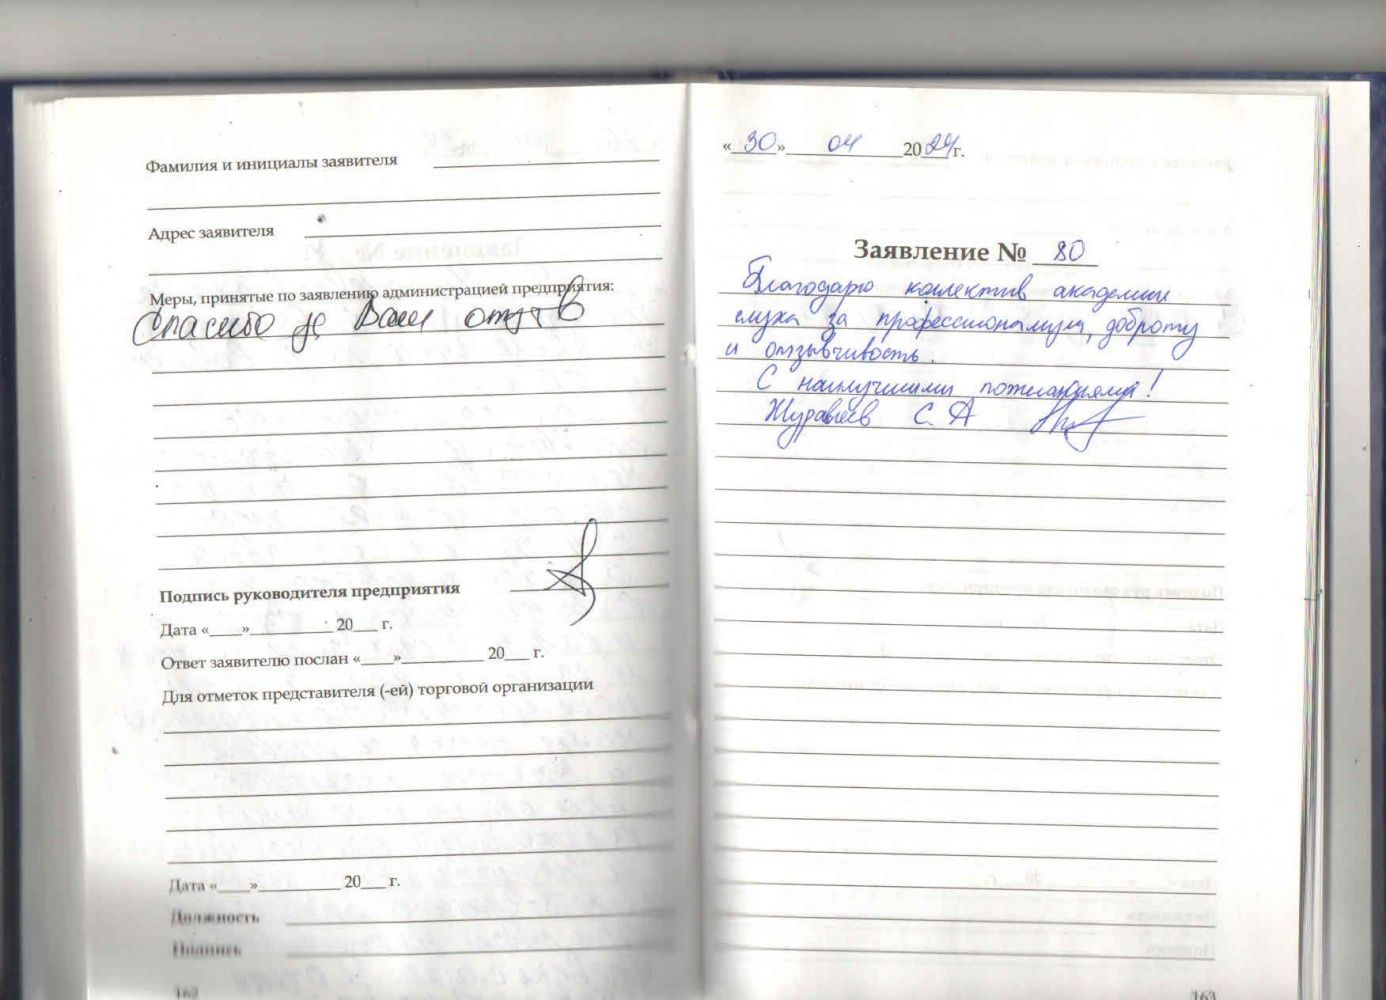 Фамилия и инициалы заявителя
Адрес заявителя
Меры, принятые по заявлению администрацией предприятия:
Спасибо за Ваш отзыв
Подпись руководителя предприятия
Дата «____»__________ 20___ г.
Ответ заявителю послан «____»__________ 20___ г.
Для отметок представителя (-ей) торговой организации
Дата «____»__________ 20___ г.
Должность
Подпись
162
«30» 04 2024 г.
Заявление № 80
Благодарю коллектив академии
слуха за профессионализм, доброту
и отзывчивость.
С наилучшими пожеланиями!
Журавлев С. А
163